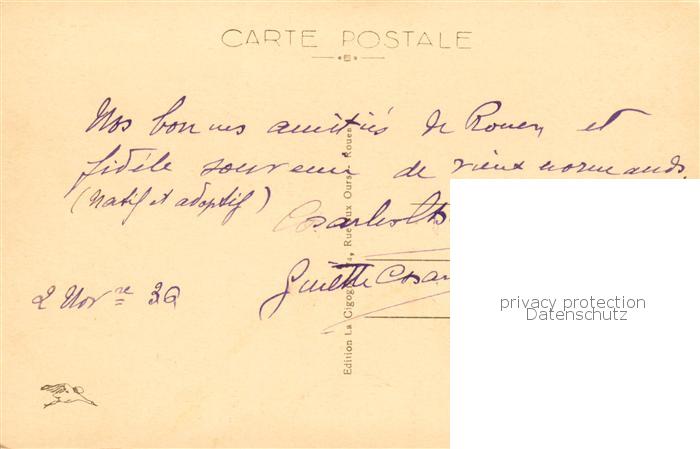 CARTE POSTALE
Nos bonnes amitiés de Rouen et
fidèle souvenir de vieux normands
(natif et adoptif)
Ginette
2 Nov re 36
Edition La Cigogne, Rue aux Ours, Rouen
privacy protection
Datenschutz